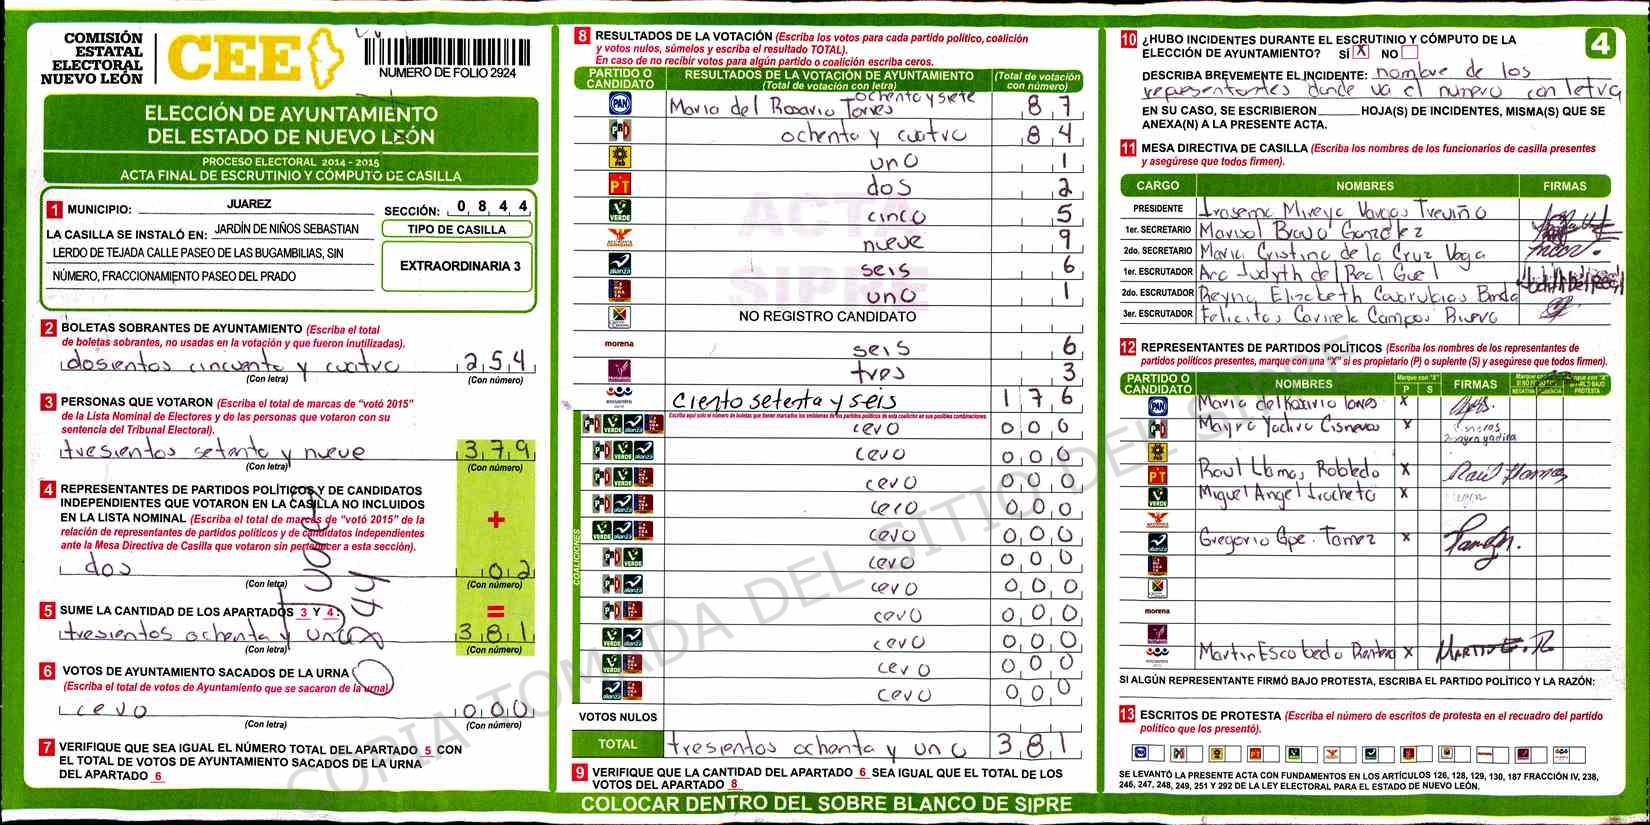 COMISIÓN
ESTATAL
ELECTORAL
NUEVO LEÓN
CEE
NUMERO DE FOLIO 2924
ELECCIÓN DE AYUNTAMIENTO
DEL ESTADO DE NUEVO LEÓN
PROCESO ELECTORAL 2014 - 2015
ACTA FINAL DE ESCRUTINIO Y CÓMPUTO DE CASILLA
1 MUNICIPIO: JUAREZ SECCIÓN: 0 8 4 4
LA CASILLA SE INSTALÓ EN: JARDÍN DE NIÑOS SEBASTIAN
LERDO DE TEJADA CALLE PASEO DE LAS BUGAMBILIAS, SIN
NÚMERO, FRACCIONAMIENTO PASEO DEL PRADO
TIPO DE CASILLA
EXTRAORDINARIA 3
2 BOLETAS SOBRANTES DE AYUNTAMIENTO (Escriba el total
de boletas sobrantes, no usadas en la votación y que fueron inutilizadas).
dosientos cincuenta y cuatro 2 5 4
(Con letra) (Con número)
3 PERSONAS QUE VOTARON (Escriba el total de marcas de “votó 2015”
de la Lista Nominal de Electores y de las personas que votaron con su
sentencia del Tribunal Electoral).
tresientos setenta y nueve 3 7 9
(Con letra) (Con número)
4 REPRESENTANTES DE PARTIDOS POLÍTICOS Y DE CANDIDATOS
INDEPENDIENTES QUE VOTARON EN LA CASILLA NO INCLUIDOS
EN LA LISTA NOMINAL (Escriba el total de marcas de “votó 2015” de la
relación de representantes de partidos políticos y de candidatos independientes
ante la Mesa Directiva de Casilla que votaron sin pertenecer a esta sección).
+
dos 0 2
(Con letra) (Con número)
5 SUME LA CANTIDAD DE LOS APARTADOS 3 Y 4:
=
tresientos ochenta y uno 3 8 1
(Con letra) (Con número)
6 VOTOS DE AYUNTAMIENTO SACADOS DE LA URNA
(Escriba el total de votos de Ayuntamiento que se sacaron de la urna)
cero 0 0 0
(Con letra) (Con número)
7 VERIFIQUE QUE SEA IGUAL EL NÚMERO TOTAL DEL APARTADO 5 CON
EL TOTAL DE VOTOS DE AYUNTAMIENTO SACADOS DE LA URNA
DEL APARTADO 6
8 RESULTADOS DE LA VOTACIÓN (Escriba los votos para cada partido político, coalición
y votos nulos, súmelos y escriba el resultado TOTAL).
En caso de no recibir votos para algún partido o coalición escriba ceros.
PARTIDO O CANDIDATO RESULTADOS DE LA VOTACIÓN DE AYUNTAMIENTO (Total de votación con letra) (Total de votación con número)
PAN Maria del Rosario Torres ochenta y siete 8 7
PRI ochenta y cuatro 8 4
PRD uno 1
PT dos 2
VERDE cinco 5
nueve 9
alianza seis 6
uno 1
NO REGISTRO CANDIDATO
morena seis 6
tres 3
encuentro ciento setenta y seis 1 7 6
Escriba aquí solo el número de boletas que tienen marcados los emblemas de los partidos políticos de esta coalición en sus posibles combinaciones.
COALICIONES
cero 0 0 0
cero 0 0 0
cero 0 0 0
cero 0 0 0
cero 0 0 0
cero 0 0 0
cero 0 0 0
cero 0 0 0
cero 0 0 0
cero 0 0 0
cero 0 0 0
VOTOS NULOS
TOTAL tresientos ochenta y uno 3 8 1
9 VERIFIQUE QUE LA CANTIDAD DEL APARTADO 6 SEA IGUAL QUE EL TOTAL DE LOS
VOTOS DEL APARTADO 8
COLOCAR DENTRO DEL SOBRE BLANCO DE SIPRE
ACTA
SIPRE
COPIA TOMADA DEL SITIO DEL SIPRE
4
10 ¿HUBO INCIDENTES DURANTE EL ESCRUTINIO Y CÓMPUTO DE LA
ELECCIÓN DE AYUNTAMIENTO? SÍ X NO
DESCRIBA BREVEMENTE EL INCIDENTE: nombre de los
representantes donde va el numero con letra
EN SU CASO, SE ESCRIBIERON HOJA(S) DE INCIDENTES, MISMA(S) QUE SE
ANEXA(N) A LA PRESENTE ACTA.
11 MESA DIRECTIVA DE CASILLA (Escriba los nombres de los funcionarios de casilla presentes
y asegúrese que todos firmen).
CARGO NOMBRES FIRMAS
PRESIDENTE Irasema Mireya Vargas Treviño
1er. SECRETARIO Marisol Bravo Gonzalez
2do. SECRETARIO Maria Cristina de la Cruz Vega
1er. ESCRUTADOR Ana Judyth del Real Guel
2do. ESCRUTADOR Reyna Elizabeth Covarubias Banda
3er. ESCRUTADOR Felicitas Campos
12 REPRESENTANTES DE PARTIDOS POLÍTICOS (Escriba los nombres de los representantes de
partidos políticos presentes, marque con una “X” si es propietario (P) o suplente (S) y asegúrese que todos firmen).
PARTIDO O CANDIDATO NOMBRES Marque con "X" P S FIRMAS
PAN Maria del Rosario Torres X
PRI Mayra Yadira Cisneros X
PT Raul Llamas Robledo X
VERDE Miguel Angel X
alianza Gregorio Gpe. Tamez X
morena
encuentro Martin Escobedo X MARTIN E. R
SI ALGÚN REPRESENTANTE FIRMÓ BAJO PROTESTA, ESCRIBA EL PARTIDO POLÍTICO Y LA RAZÓN:
13 ESCRITOS DE PROTESTA (Escriba el número de escritos de protesta en el recuadro del partido
político que los presentó).
SE LEVANTÓ LA PRESENTE ACTA CON FUNDAMENTOS EN LOS ARTÍCULOS 126, 128, 129, 130, 187 FRACCIÓN IV, 238,
246, 247, 248, 249, 251 Y 292 DE LA LEY ELECTORAL PARA EL ESTADO DE NUEVO LEÓN.